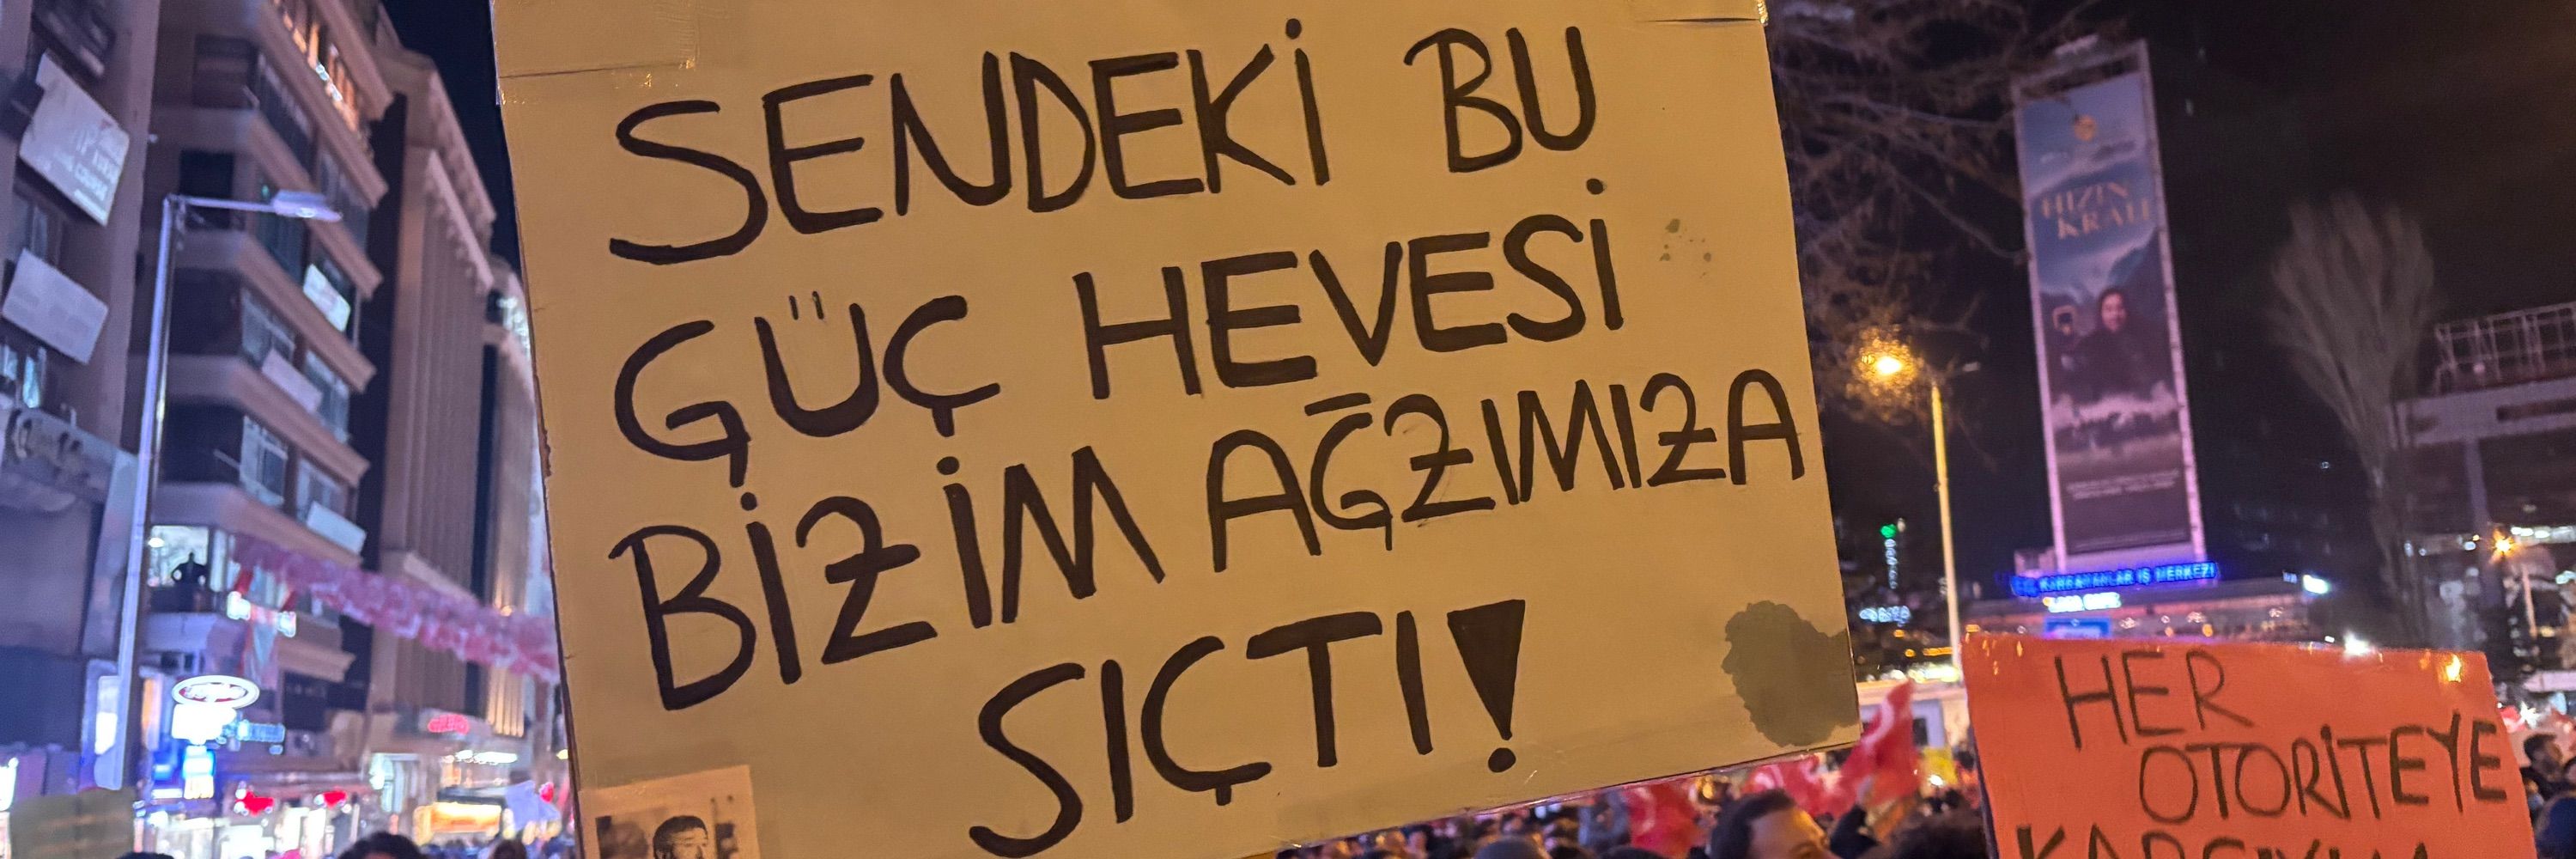 SENDEKİ BU
GÜÇ HEVESİ
BİZİM AĞZIMIZA
SIÇTI!
HER
OTORİTEYE
KARŞIYIM
HIZIN
KRALI
İŞ MERKEZİ